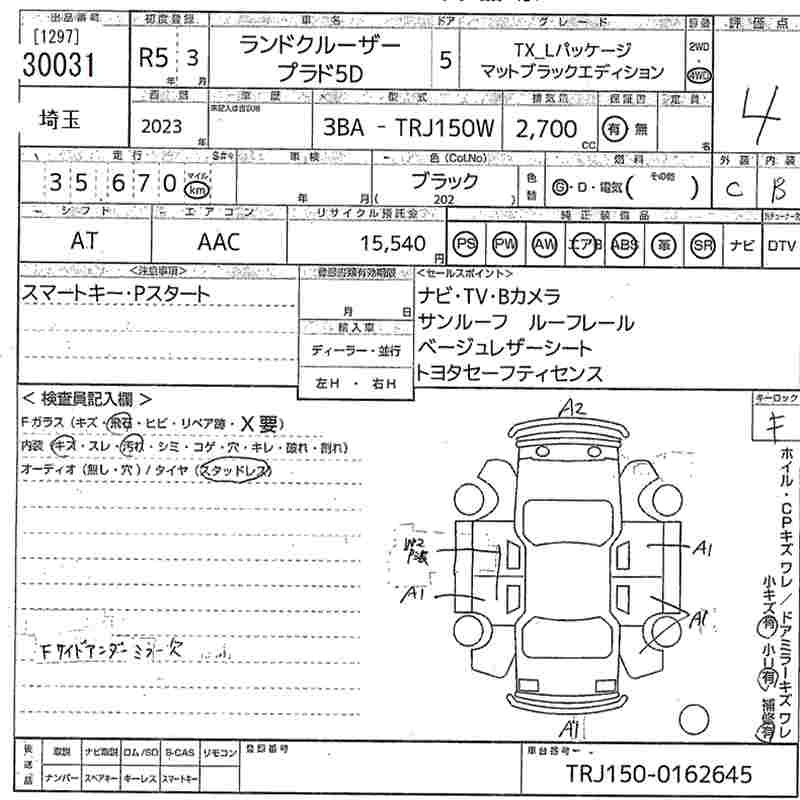 出品番号 初度登録 車名 ドア グレード 駆動 評価点
[1297]
30031
R5 3
年 月
ランドクルーザー
プラド5D
5
TX_Lパッケージ
マットブラックエディション
2WD
4WD
4
埼玉
車歴 型式 排気量 保証書 定員
2023
年
未記入は自家用
3BA - TRJ150W
2,700
CC
有 無
名
走行 車検 色(Col.No) 燃料 外装 内装
35 670
マイル
km
年 月
ブラック
( 202 )
色替
G・D・電気( その他 )
C B
シフト エアコン リサイクル預託金 純正装備品
AT
AAC
15,540
円
PS PW AW エアB ABS 革 SR ナビ DTV
<注意事項>
スマートキー・Pスタート
登録書類有効期限
月 日
輸入車
ディーラー・並行
左H ・ 右H
<セールスポイント>
ナビ・TV・Bカメラ
サンルーフ ルーフレール
ベージュレザーシート
トヨタセーフティセンス
<検査員記入欄>
Fガラス(キズ・飛石・ヒビ・リペア跡・X要)
内装(キズ・スレ・汚れ・シミ・コゲ・穴・キレ・破れ・割れ)
オーディオ(無し・穴)/タイヤ(スタッドレス)
Fサイドアンダーミラー欠
A2
W2
P波
A1
A1
A1
A1
キーロック
キ
ホイル・CPキズ ワレ/ドアミラーキズ ワレ
小キズ有 小凹有 補修有
後送品
取説 ナビ取説 ロム/SD B-CAS リモコン
ナンバー スペアキー キーレス スマートキー
登録番号
車台番号
TRJ150-0162645